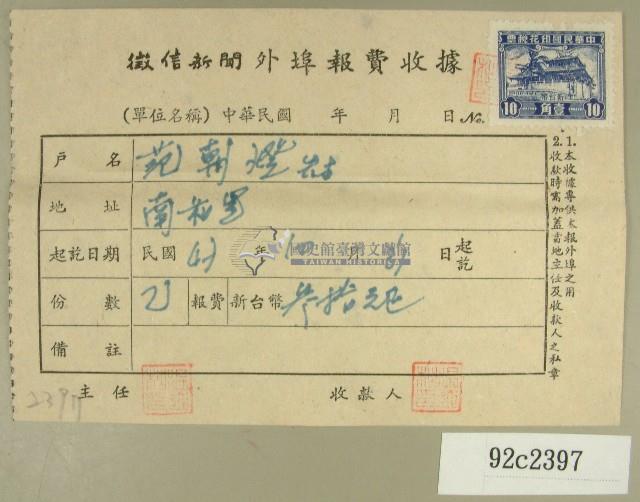 徵信新聞外埠報費收據
中華民國印花稅票
壹角
10 10
(單位名稱) 中華民國 年 月 日 No.
戶名 范朝燈
地址 南和里
起訖日期 民國 年 月 日 起訖
份數 報費 新台幣 參拾元正
備註
主任 收款人
1.本收據專供本報外埠之用
2.收款時需加蓋當地主任及收款人之私章
國史館臺灣文獻館
TAIWAN HISTORICA
92c2397